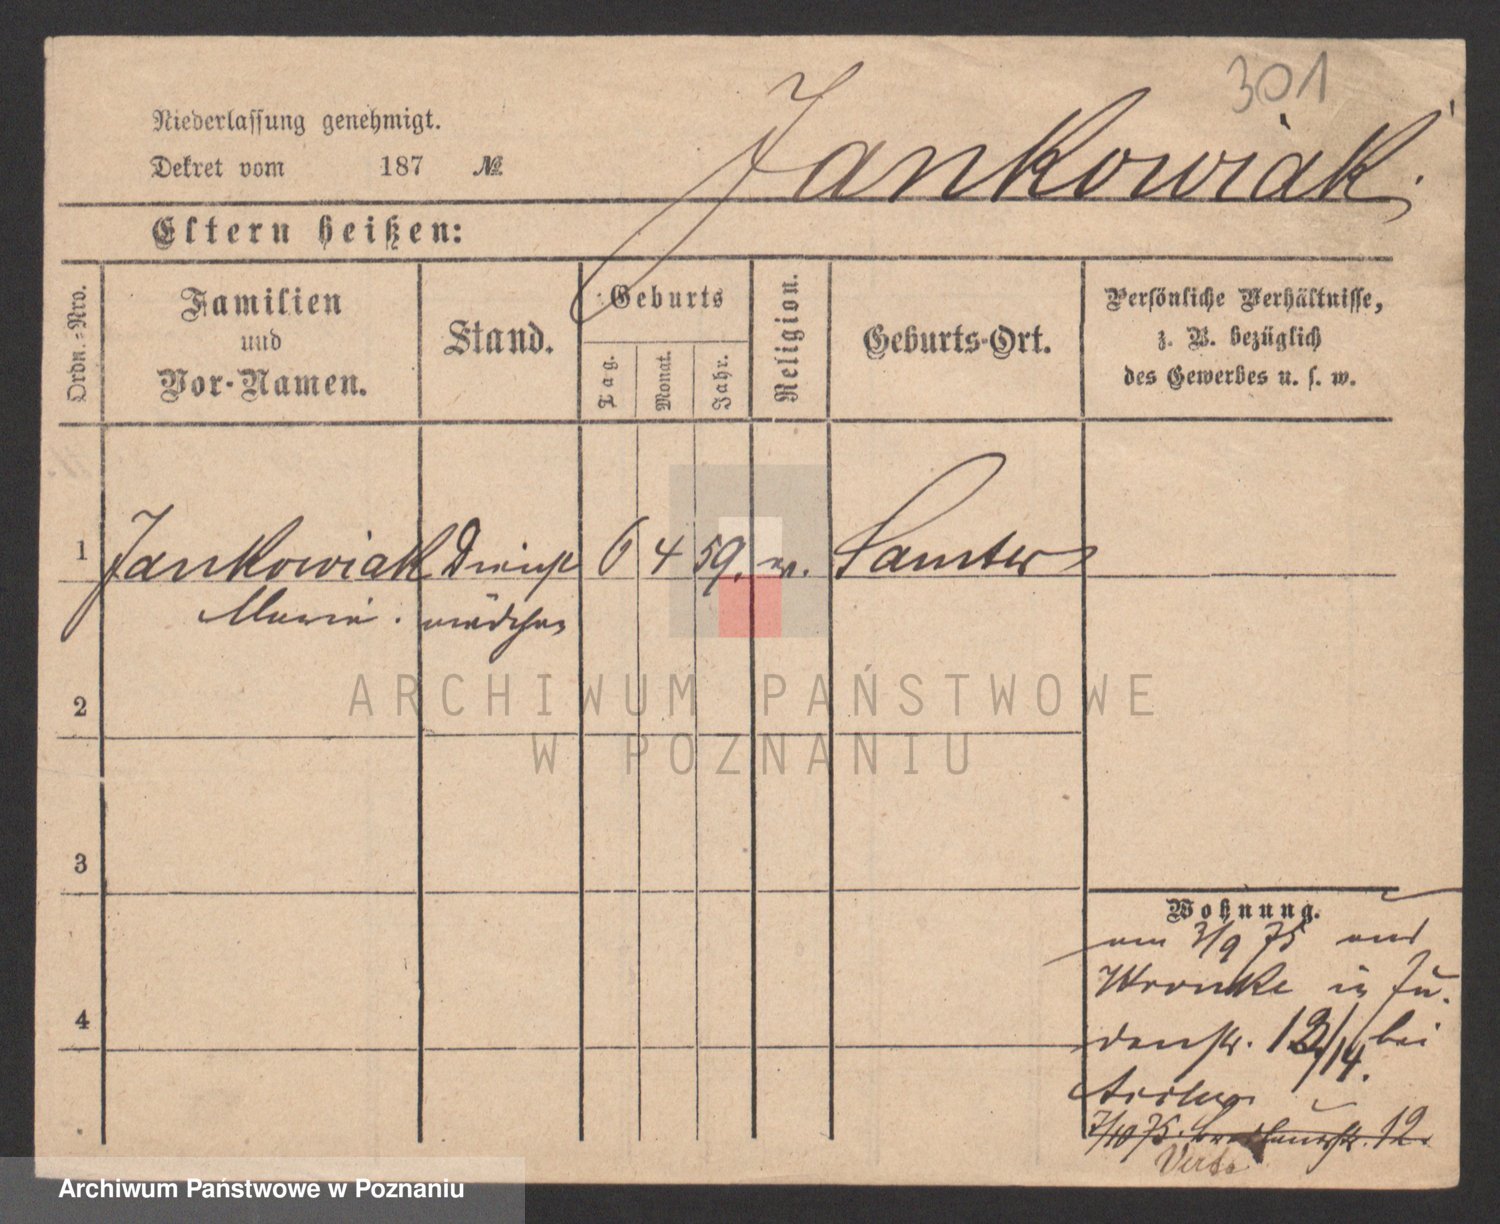 301
Jankowiak.
Niederlassung genehmigt.
Dekret vom 187 №
Eltern heißen:
Ordn.-Nro.
Familien
und
Vor-Namen.
Stand.
Geburts
Tag.
Monat.
Jahr.
Religion.
Geburts-Ort.
Persönliche Verhältnisse,
z. B. bezüglich
des Gewerbes u. s. w.
1 Jankowiak Dienst 6 4 59. Samter
Marie. mädchen
ARCHIWUM PAŃSTWOWE
W POZNANIU
2
3
4
Wohnung.
am 3/9 75 aus
Wronke in Ju-
denstr. 13/14. bei
7/10 75. 12.
Archiwum Państwowe w Poznaniu